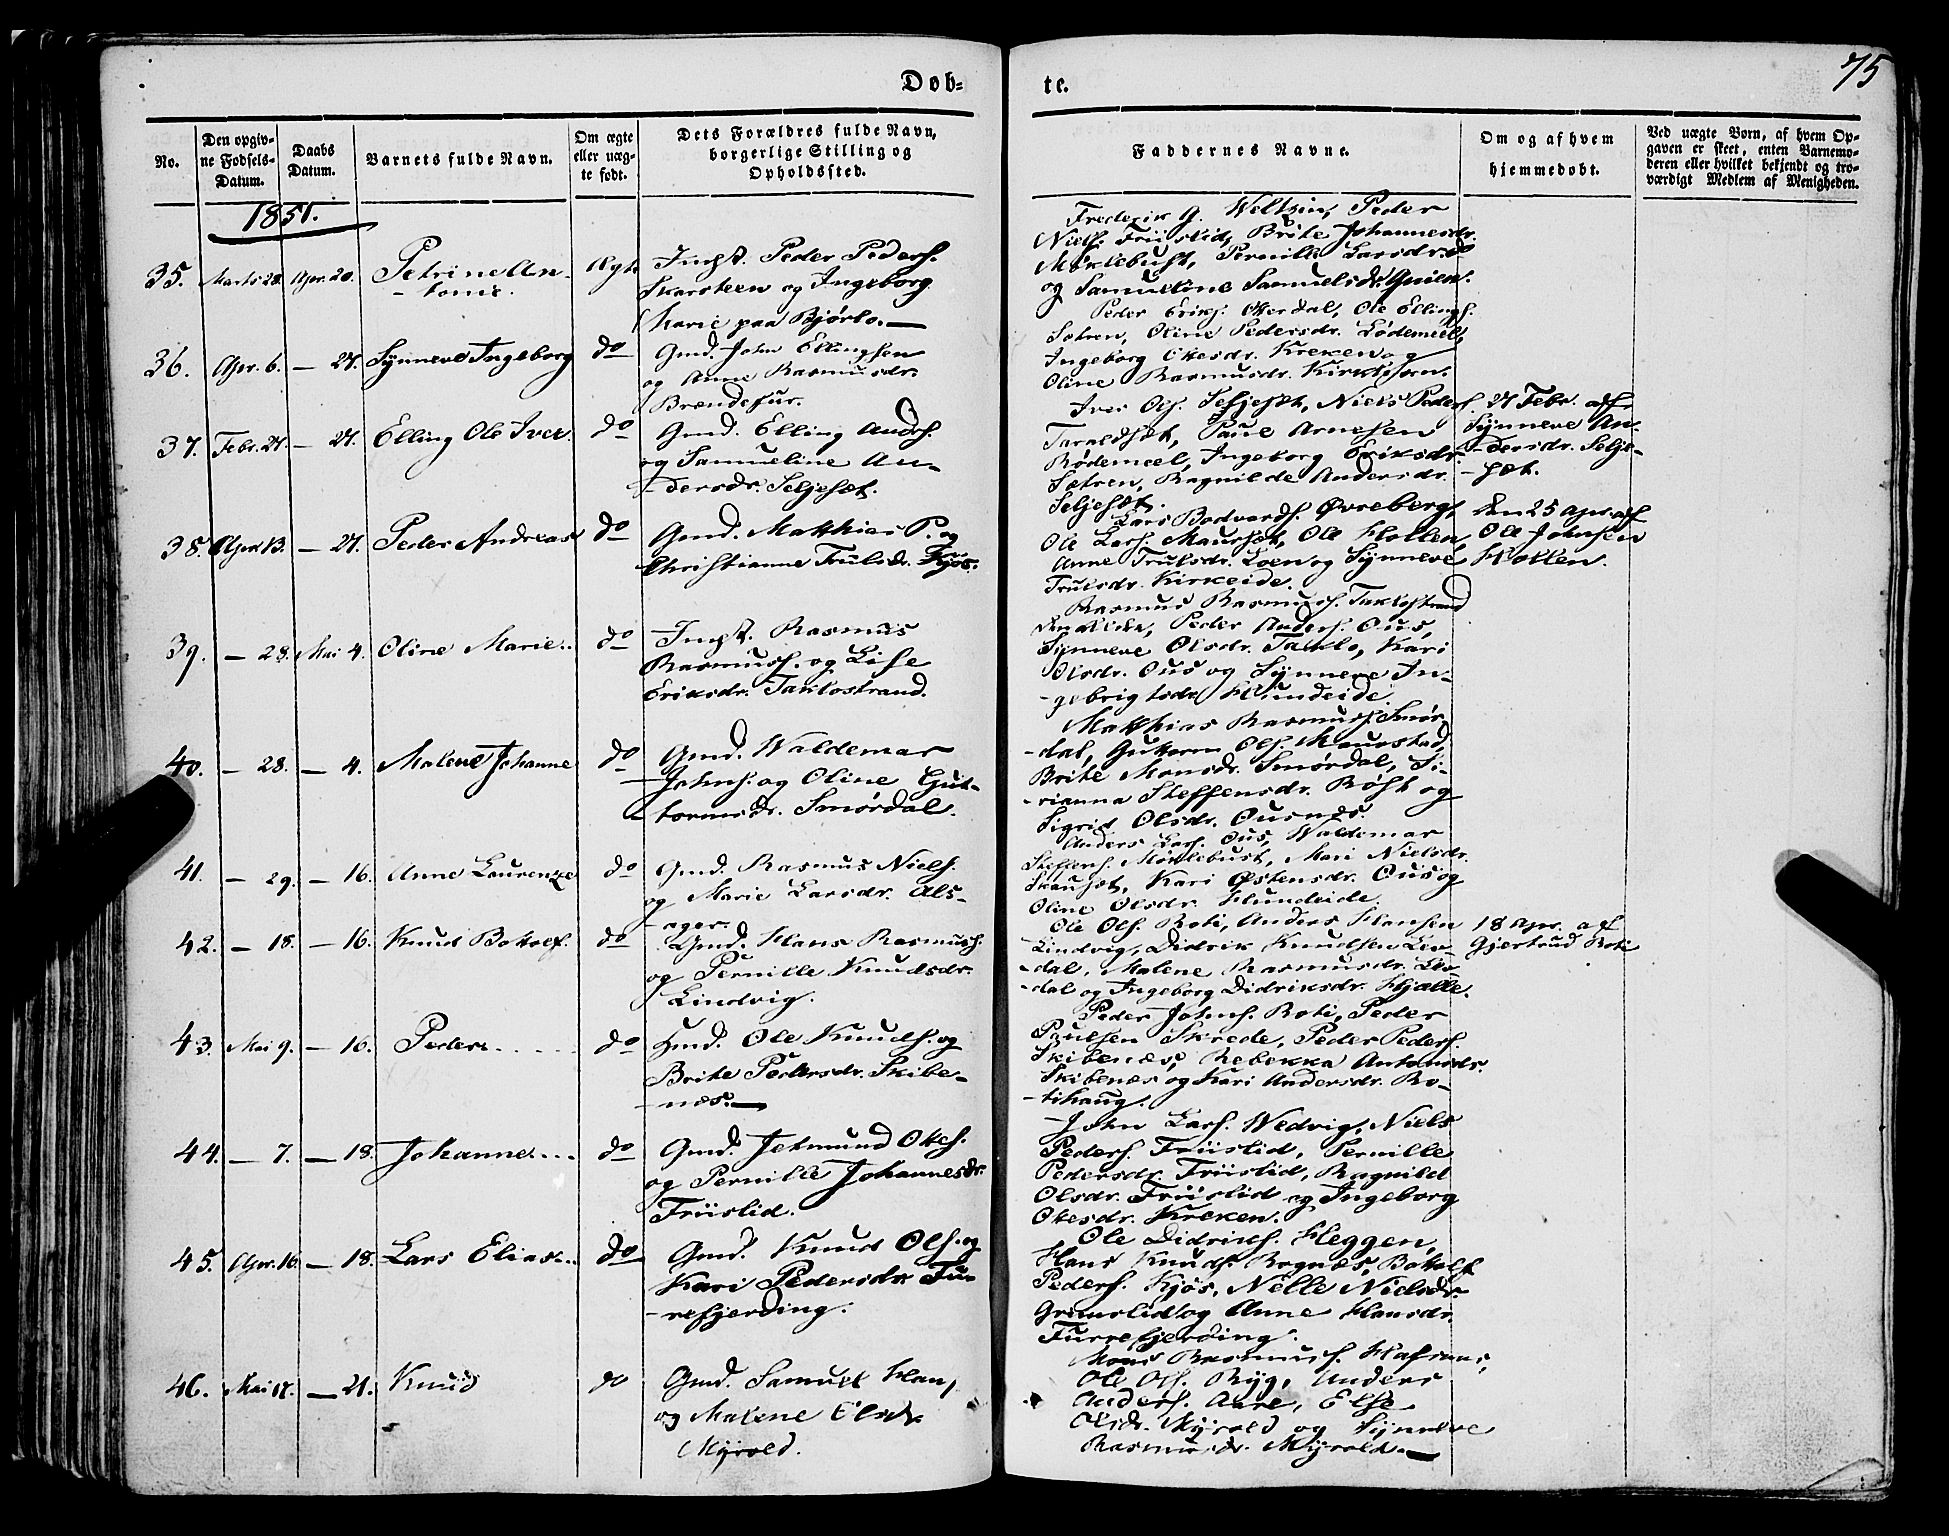 75
Døb-
te.
No.
Den opgiv-
ne Fødsels-
Datum.
Daabs
Datum.
Barnets fulde Navn.
Om ægte
eller uæg-
te født.
Dets Forældres fulde Navn,
borgerlige Stilling og
Opholdssted.
Faddernes Navne.
Om og af hvem
hjemmedøbt.
Ved uægte Børn, af hvem Op-
gaven er skeet, enten Barnemo-
deren eller hvilket bekjendt og tro-
værdigt Medlem af Menigheden.
1851.
35. Marts 28. Apr. 20. Petrine An-
tonie.
Ægte
Indst. Peder Peders.
Skarsteen og Ingeborg
Marie paa Bjørlo.
Frederik G. Weltzin, Peder
Niels. Friislid, Brite Johannesdr.
Myklebust, Pernille Larsdr.
og Samueline Samuelsdr.
36. Apr. 6. — 21. Synneve Ingeborg do
Gmd. John Ellingsen
og Anne Rasmusdr.
Brendefur.
Peder Eriks. Otterdal, Ole Ellings.
Sætren, Oline Pedersdr. Lødemeel,
Ingeborg Olesdr. Kreken og
Oline Rasmusdr. Kirkhorn.
37. Febr. 27. — 21. Elling Ole Iver. do
Gmd. Elling Anders.
og Samueline An-
dersdr. Seljeset.
Iver Ols. Seljeset, Niels Peders.
Taraldset, Paul Arnesen
Rødemeel, Ingeborg Eriksdr.
Sætren, Ragnilde Andersdr.
Seljeset.
27 Febr. af
Synneve An-
dersdr. Selje-
set.
38. April 13. — 21. Peder Andreas do
Gmd. Matthias P. og
Christianne Trulsdr. Kjøs.
Lars Bodvards. Øvreberg,
Ole Lars. Maurset, Ole Holten,
Anne Trulsdr. Loen og Synneve
Trulsdr. Kirkeide.
den 25 Apr. af
Ole Johnsen
Holten.
39. — 28. Mai 4. Oline Marie.. do
Indst. Rasmus
Rasmuss. og Lise
Eriksdr. Taklostrand.
Rasmus Rasmuss. Taklostrand
Peder Anders. Ous,
Synneve Olsdr. Taklo, Kari
Olsdr. Ous og Synneve In-
gebrigtsdr. Hundeide.
40. — 28. — 4. Malene Johanne do
Gmd. Waldemar
Johns. og Oline Gut-
tormsdr. Smørdal.
Matthias Rasmuss. Smør-
dal, Guttorm Ols. Maurstad,
Brite Monsdr. Smørdal, Si-
rianna Steffensdr. Røst og
Sigrid Olsdr. Ousnes.
41. — 29. — 16. Anne Laurenze do
Gmd. Rasmus Niels.
og Marie Larsdr. Als-
ager.
Anders Lars. Ous, Waldemar
Steffens. Myklebust, Mari Nielsdr.
Skauset, Kari Østensdr. Ous og
Oline Olsdr. Hundeide.
42. — 18. — 16. Knud Botolf. do
Gmd. Hans Rasmuss.
og Pernille Knudsdr.
Lindvig.
Ole Ols. Roti, Anders Hansen
Lindvig, Didrik Knudsen Lev-
dal, Malene Rasmusdr. Lev-
dal og Ingeborg Didriksdr. Hjelle.
18 Apr. af
Gjertrud Roti
43. Mai 9. — 16. Peder.... do
Hmd. Ole Knuds. og
Brite Pedersdr. Skibe-
næs.
Peder Johns. Roti, Peder
Paulsen Skrede, Peder Peders.
Skibenæs, Rebekka Antonsdr.
Skibenæs og Kari Andersdr. Ro-
tihaug.
44. — 7. — 18. Johanne... do
Gmd. Jetmund Oles.
og Pernille Johannesdr.
Friislid.
John Lars. Wedvig, Niels
Peders. Friislid, Pernille
Pedersdr. Friislid, Ragnild
Olsdr. Friislid og Ingeborg
Olesdr. Kreken.
45. Apr. 16. — 18. Lars Elias.. do
Gmd. Knud Ols. og
Kari Pedersdr. Fu-
refjerding.
Ole Didriks. Heggen,
Hans Knuds. Rognæs, Botolf
Peders. Kjøs, Nille Nielsdr.
Grimslid og Anne Hansdr.
Furrefjerding.
46. Mai 11. — 21. Knud do
Gmd. Samuel Hans.
og Malene Olsdr.
Myrold.
Mons Rasmuss. Hafsaas,
Ole Ols. Ryg, Anders
Anders. Aare, Else
Olsdr. Myrold og Synneve
Rasmusdr. Myrold.